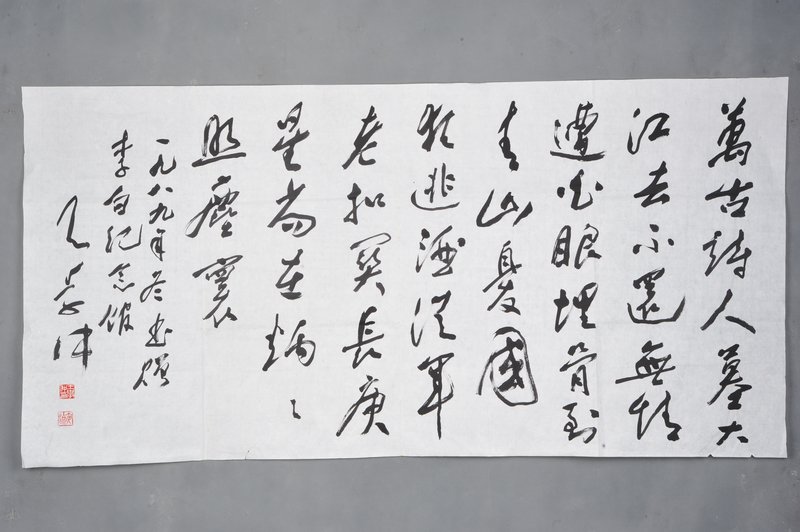 萬古詩人墓大
江去不還無情
遭白眼埋骨到
青山憂國
狂逃酒從軍
老扣關長庚
星尚在炳々
照塵寰
一九八九年冬書贈
李白紀念館